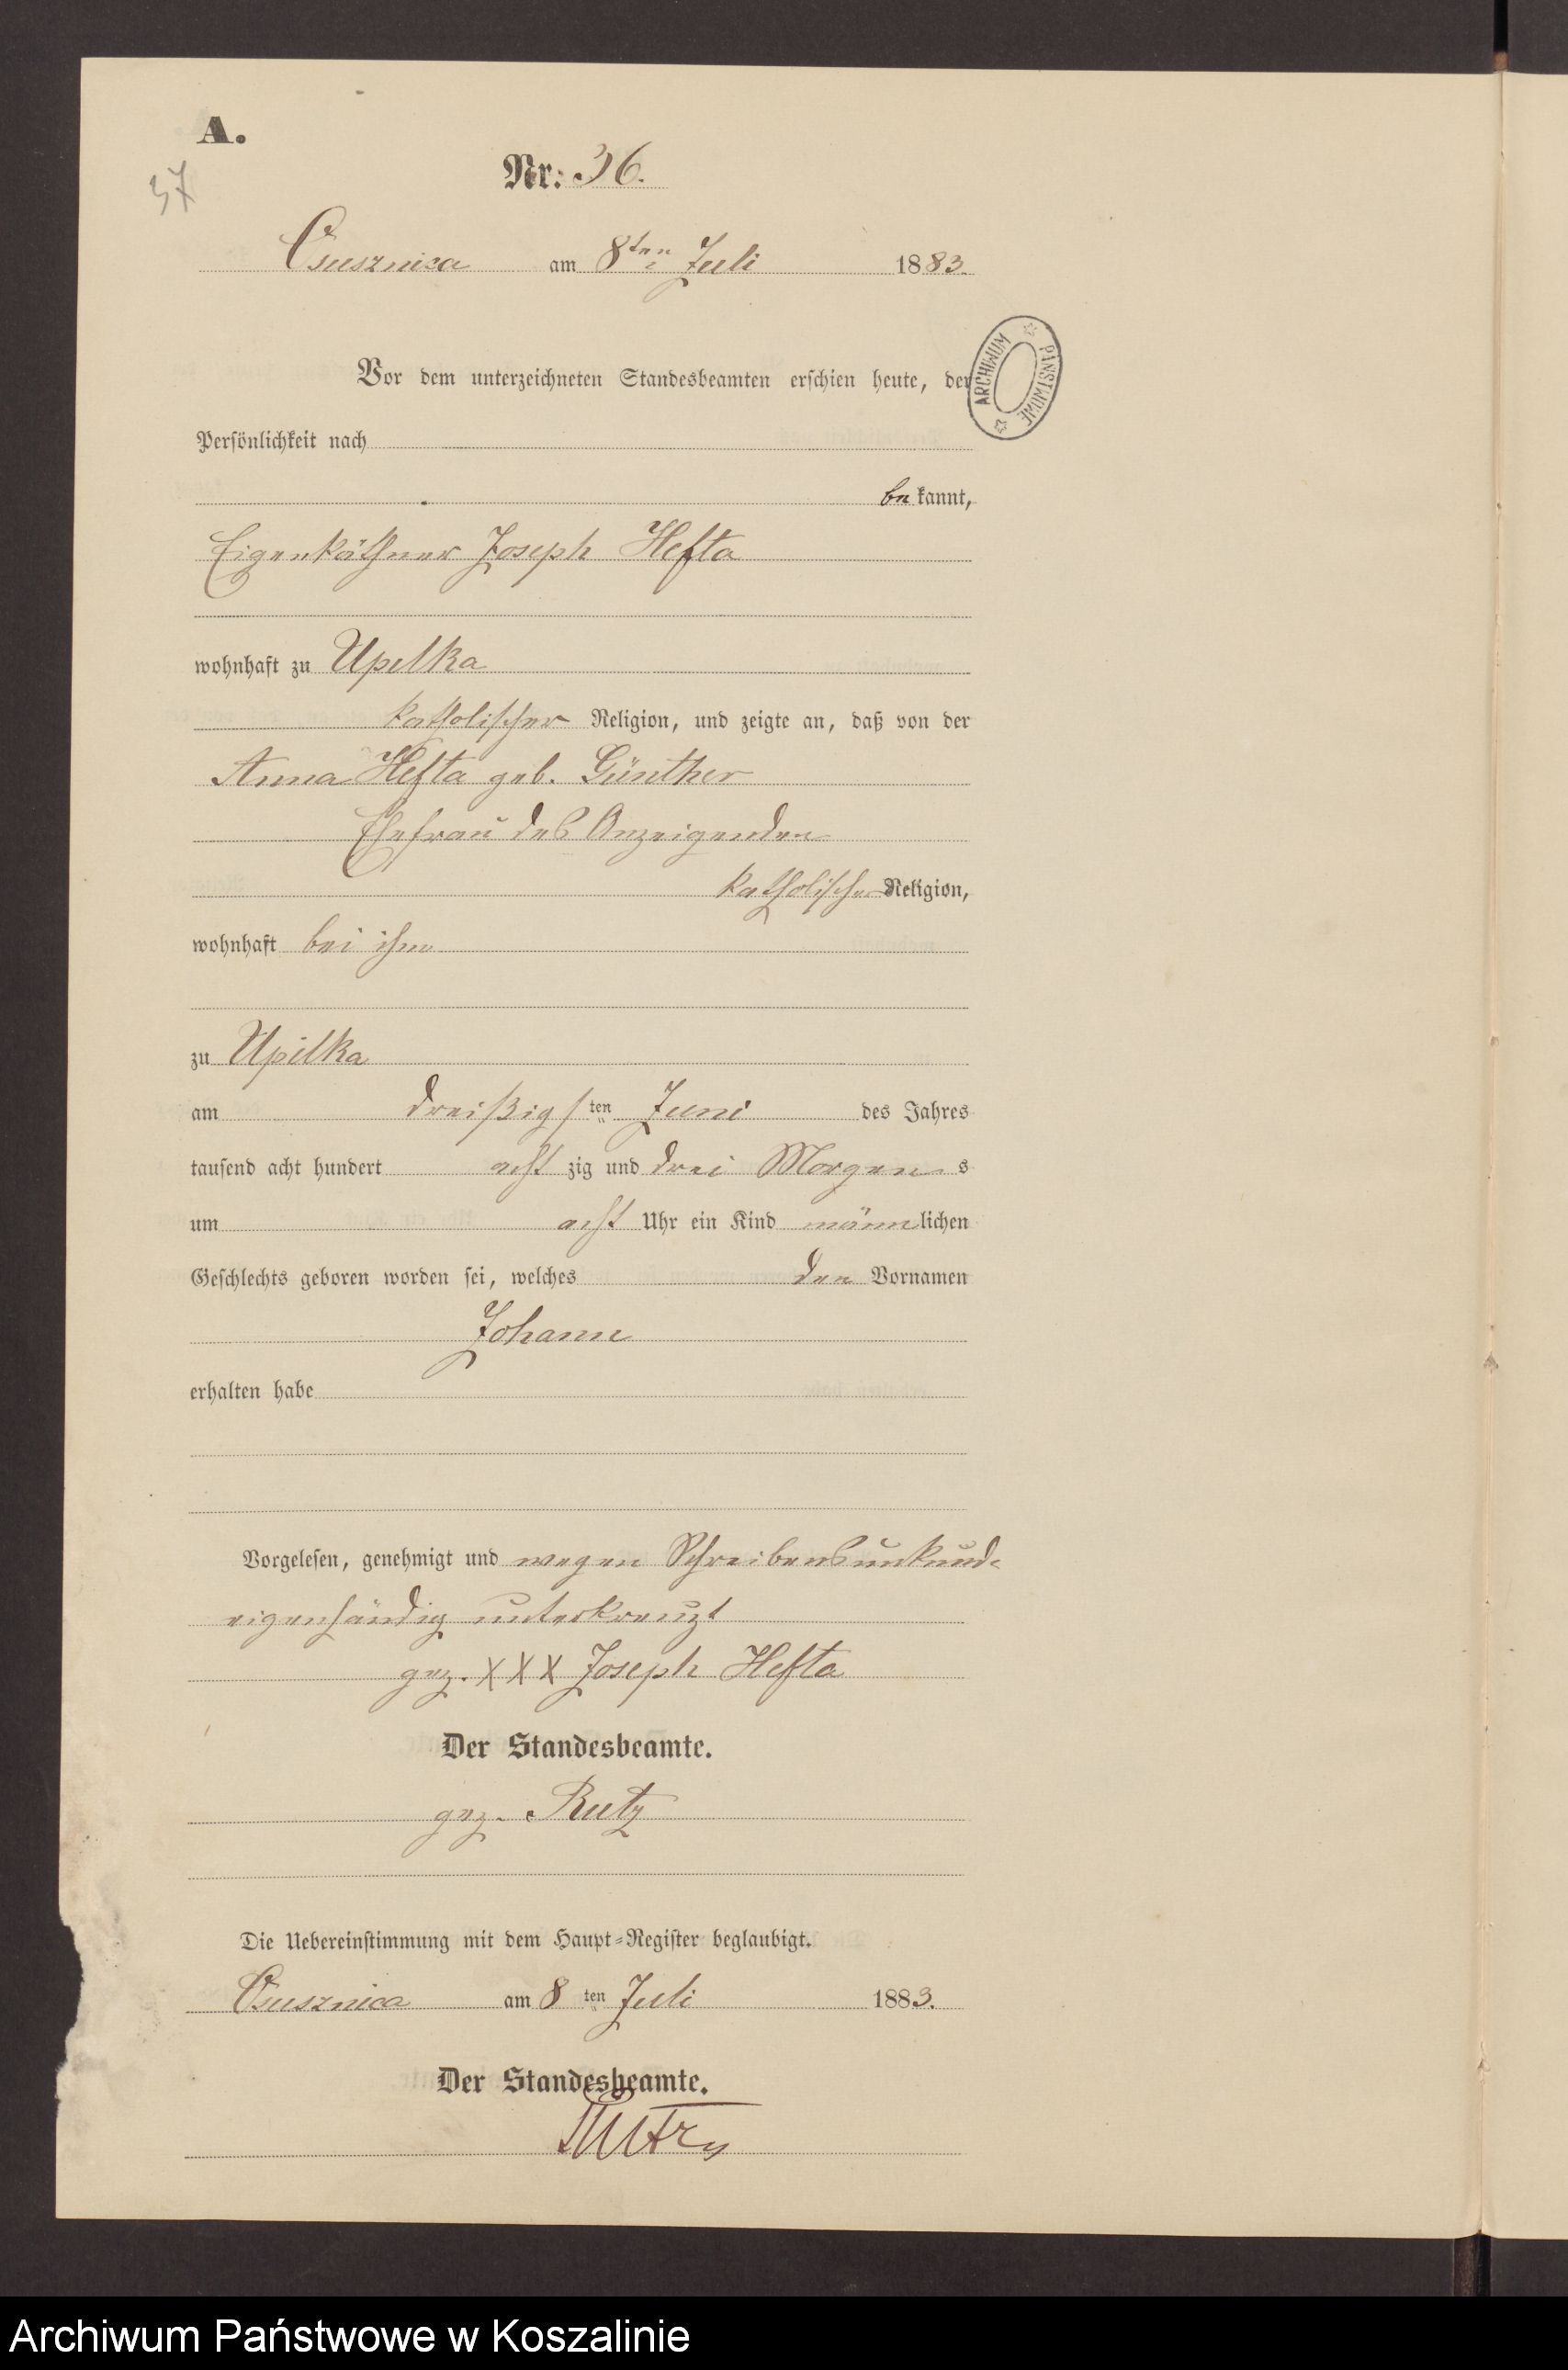 A.
37
Nr. 36.
Osusznica am 8ten Juli 1883.
Vor dem unterzeichneten Standesbeamten erschien heute, der
ARCHIWUM PAŃSTWOWE
Persönlichkeit nach
be kannt,
Eigenkäthner Joseph Hefta
wohnhaft zu Upilka
katholischer Religion, und zeigte an, daß von der
Anna Hefta geb. Günther
Ehefrau des Anzeigenden
katholischer Religion,
wohnhaft bei ihm
zu Upilka
am dreißigsten Juni des Jahres
tausend acht hundert acht zig und drei Morgens
um acht Uhr ein Kind männlichen
Geschlechts geboren worden sei, welches den Vornamen
Johann
erhalten habe
Vorgelesen, genehmigt und wegen Schreibensunkunde
eigenhändig unterkreuzt
gez. XXX Joseph Hefta
Der Standesbeamte.
gez. Rutz
Die Uebereinstimmung mit dem Haupt-Register beglaubigt.
Osusznica am 8 ten Juli 1883.
Der Standesbeamte.
Rutz
Archiwum Państwowe w Koszalinie